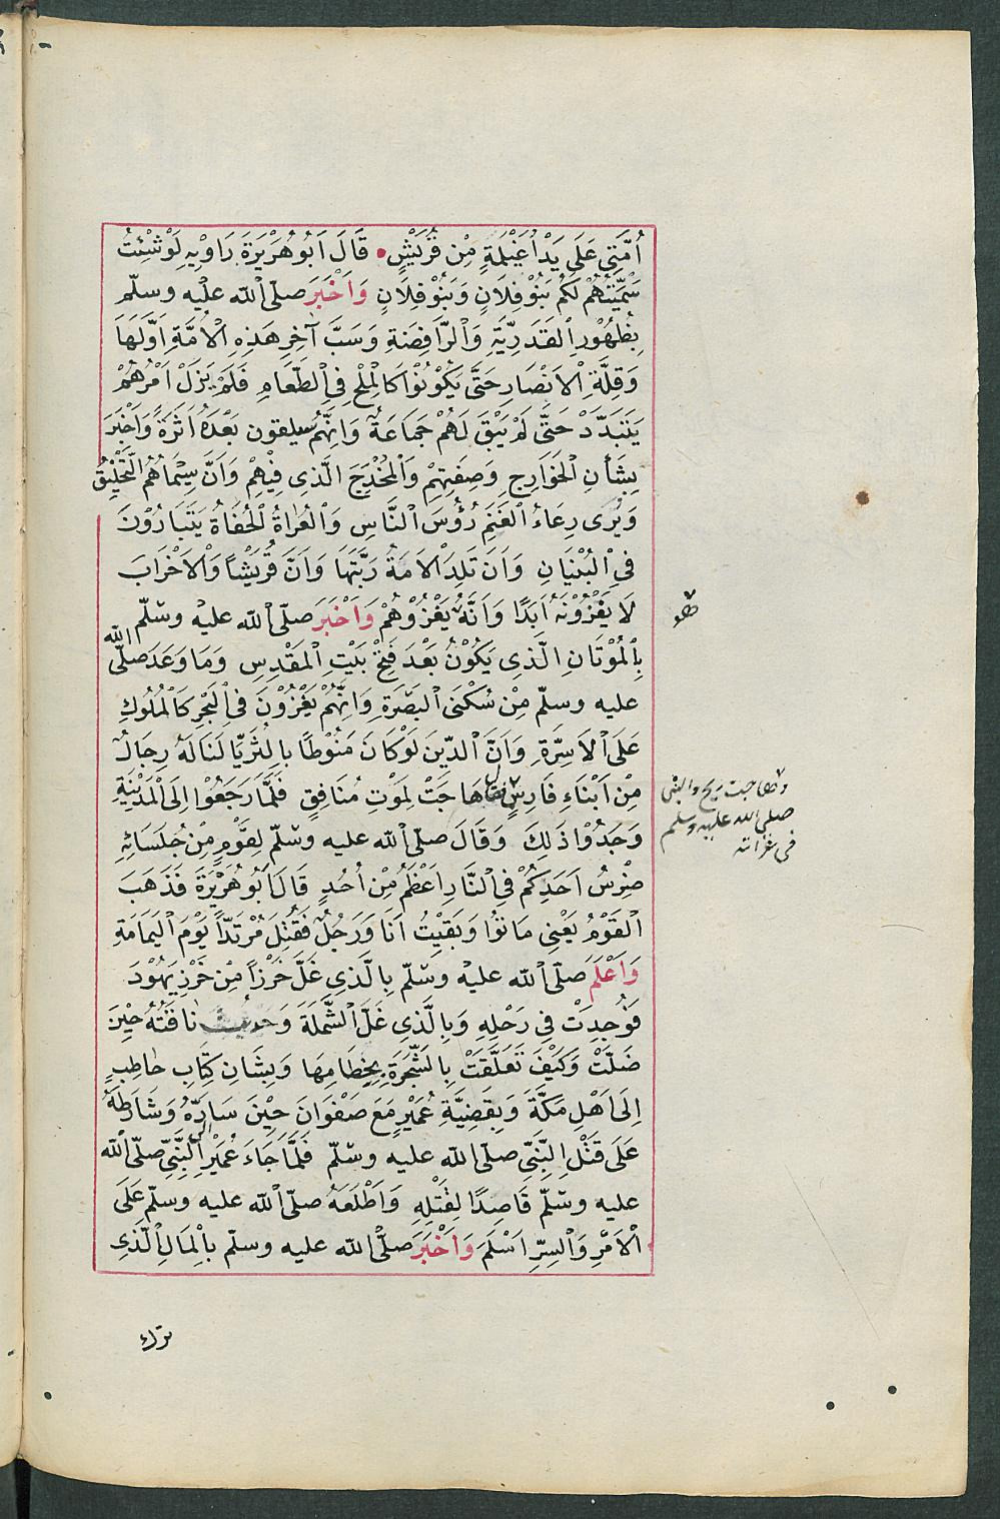 اُمَّتِي عَلَى يَدْ اُغَيْلِمَةٍ مِنْ قُرَيْشٍ • قَالَ اَبُو هُرَيْرَةَ رَاوِيْهِ لَوْ شِئْتُ
سَمَّيْتُهُمْ لَكُمْ بَنُوْ فِلَانٍ وَبَنُوْ فِلَانٍ وَاَخْبَرَ صلّى الله عليه وسلّم
بِظُهُوْرِ الْقَدَرِيَّةِ وَالْرَّافِضَةِ وَسَبَّ آخِرِ هَذِهِ الْاُمَّةِ اَوَّلَهَا
وَقِلَّةِ الْاَنْصَارِ حَتَّى يَكُوْنُوْا كَالْمِلْحِ فِي الْطَّعَامِ فَلَمْ يَزَلْ اَمْرُهُمْ
يَتَبَدَّدْ حَتَّى لَمْ يَبْقَ لَهُمْ جَمَاعَةٌ وَاِنَّهُمْ سيلقون بَعْدَهُ اَثَرَةً وَاَخْبَرَ
بِشَأْنِ الْخَوَارِجِ وَصِفَتِهِمْ وَالْمُخْدَجَ الَّذِي فِيْهِمْ وَاَنَّ سِيْمَاهُمُ الْتَّحْلِيْقُ
وَيُرَى رِعَاءُ الْغَنَمِ رُؤُسَ الْنَّاسِ وَالْعُرَاةُ الْحُفَاةُ يَتَبَارُوْنَ
فِي الْبُنْيَانِ وَاَنَ تَلِدَ الْاَمَةُ رَبَّتَهَا وَاَنَّ قُرَيْشًا وَالْاَحْزَابَ
لَا يَغْزُوْنَهُ اَبَدًا وَاَنَّهُ يَغْزُوْهُمْ وَاَخْبَرَ صلّى الله عليه وسلّم
بِالْمُوْتَانِ الَّذِي يَكُوْنُ بَعْدَ فَتْحِ بَيْتِ الْمَقْدِسِ وَمَا وَعَدَ صلّى الله
عليه وسلّم مِنْ سُكْنَى الْبَصْرَةِ وَاِنَّهُمْ يَغْزُوْنَ فِي الْبَحْرِ كَالْمُلُوكِ
عَلَى الْاَسِرَّةِ وَاَنَّ الْدِّينَ لَوْ كَانَ مَنُوْطًا بِالْثُرَيَّا لَنَالَهُ رِجَالٌ
مِنْ اَبْنَاءِ فَارِسٍ هَاجَتْ لِمَوْتِ مُنَافِقٍ فَلَمَّا رَجَعُوْا اِلَى الْمَدِيْنَةِ
وَجَدُوْا ذَلِكَ وَقَالَ صلّى الله عليه وسلّم لِقَوْمٍ مِنْ جُلَسَائِهِ
ضِرْسُ اَحَدِكُمْ فِي الْنَّارِ اَعْظَمُ مِنْ اُحُدٍ قَالَ اَبُو هُرَيْرَةَ فَذَهَبَ
الْقَوْمُ يَعْنِي مَاتُوْا وَبَقِيْتُ اَنَا وَرَجُلٌ فَقُتِلَ مُرْتَدًّا يَوْمَ الْيَمَامَةِ
وَاَعْلَمَ صلّى الله عليه وسلّم بِالَّذِي غَلَّ خَرَزًا مِنْ خَرَزِ يَهُوْدَ
فَوُجِدَتْ فِي رَحْلِهِ وَبِالَّذِي غَلَّ الْشَّمْلَةَ وَحديث نَاقَتُهُ حِيْنَ
ضَلَّتْ وَكَيْفَ تَعَلَّقَتْ بِالشَّجَرَةِ بِخِطَامِهَا وَبِشَانِ كِتَابِ حَاطِبٍ
اِلَى اَهْلِ مَكَّةَ وَبِقَضِيَّةِ عُمَيْرٍ مَعَ صَفْوَانَ حِيْنَ سَارَّهُ وَشَارَطَهُ
عَلَى قَتْلِ الْنَّبِيِّ صلّى الله عليه وسلّم فَلَمَّا جَاءَ عُمَيْرٌ اِلى الْنَّبِيِّ صلّى الله
عليه وسلّم قَاصِدًا لِقَتْلِهِ وَاَطْلَعَهُ صلّى الله عليه وسلّم عَلَى
الْاَمْرِ وَالْسِرِّ اَسْلَمَ وَاَخْبَرَ صلّى الله عليه وسلّم بِالْمَالِ الَّذِي
هاجت ريح والنبى
صلى الله عليه وسلم
فى غزاته
تركه